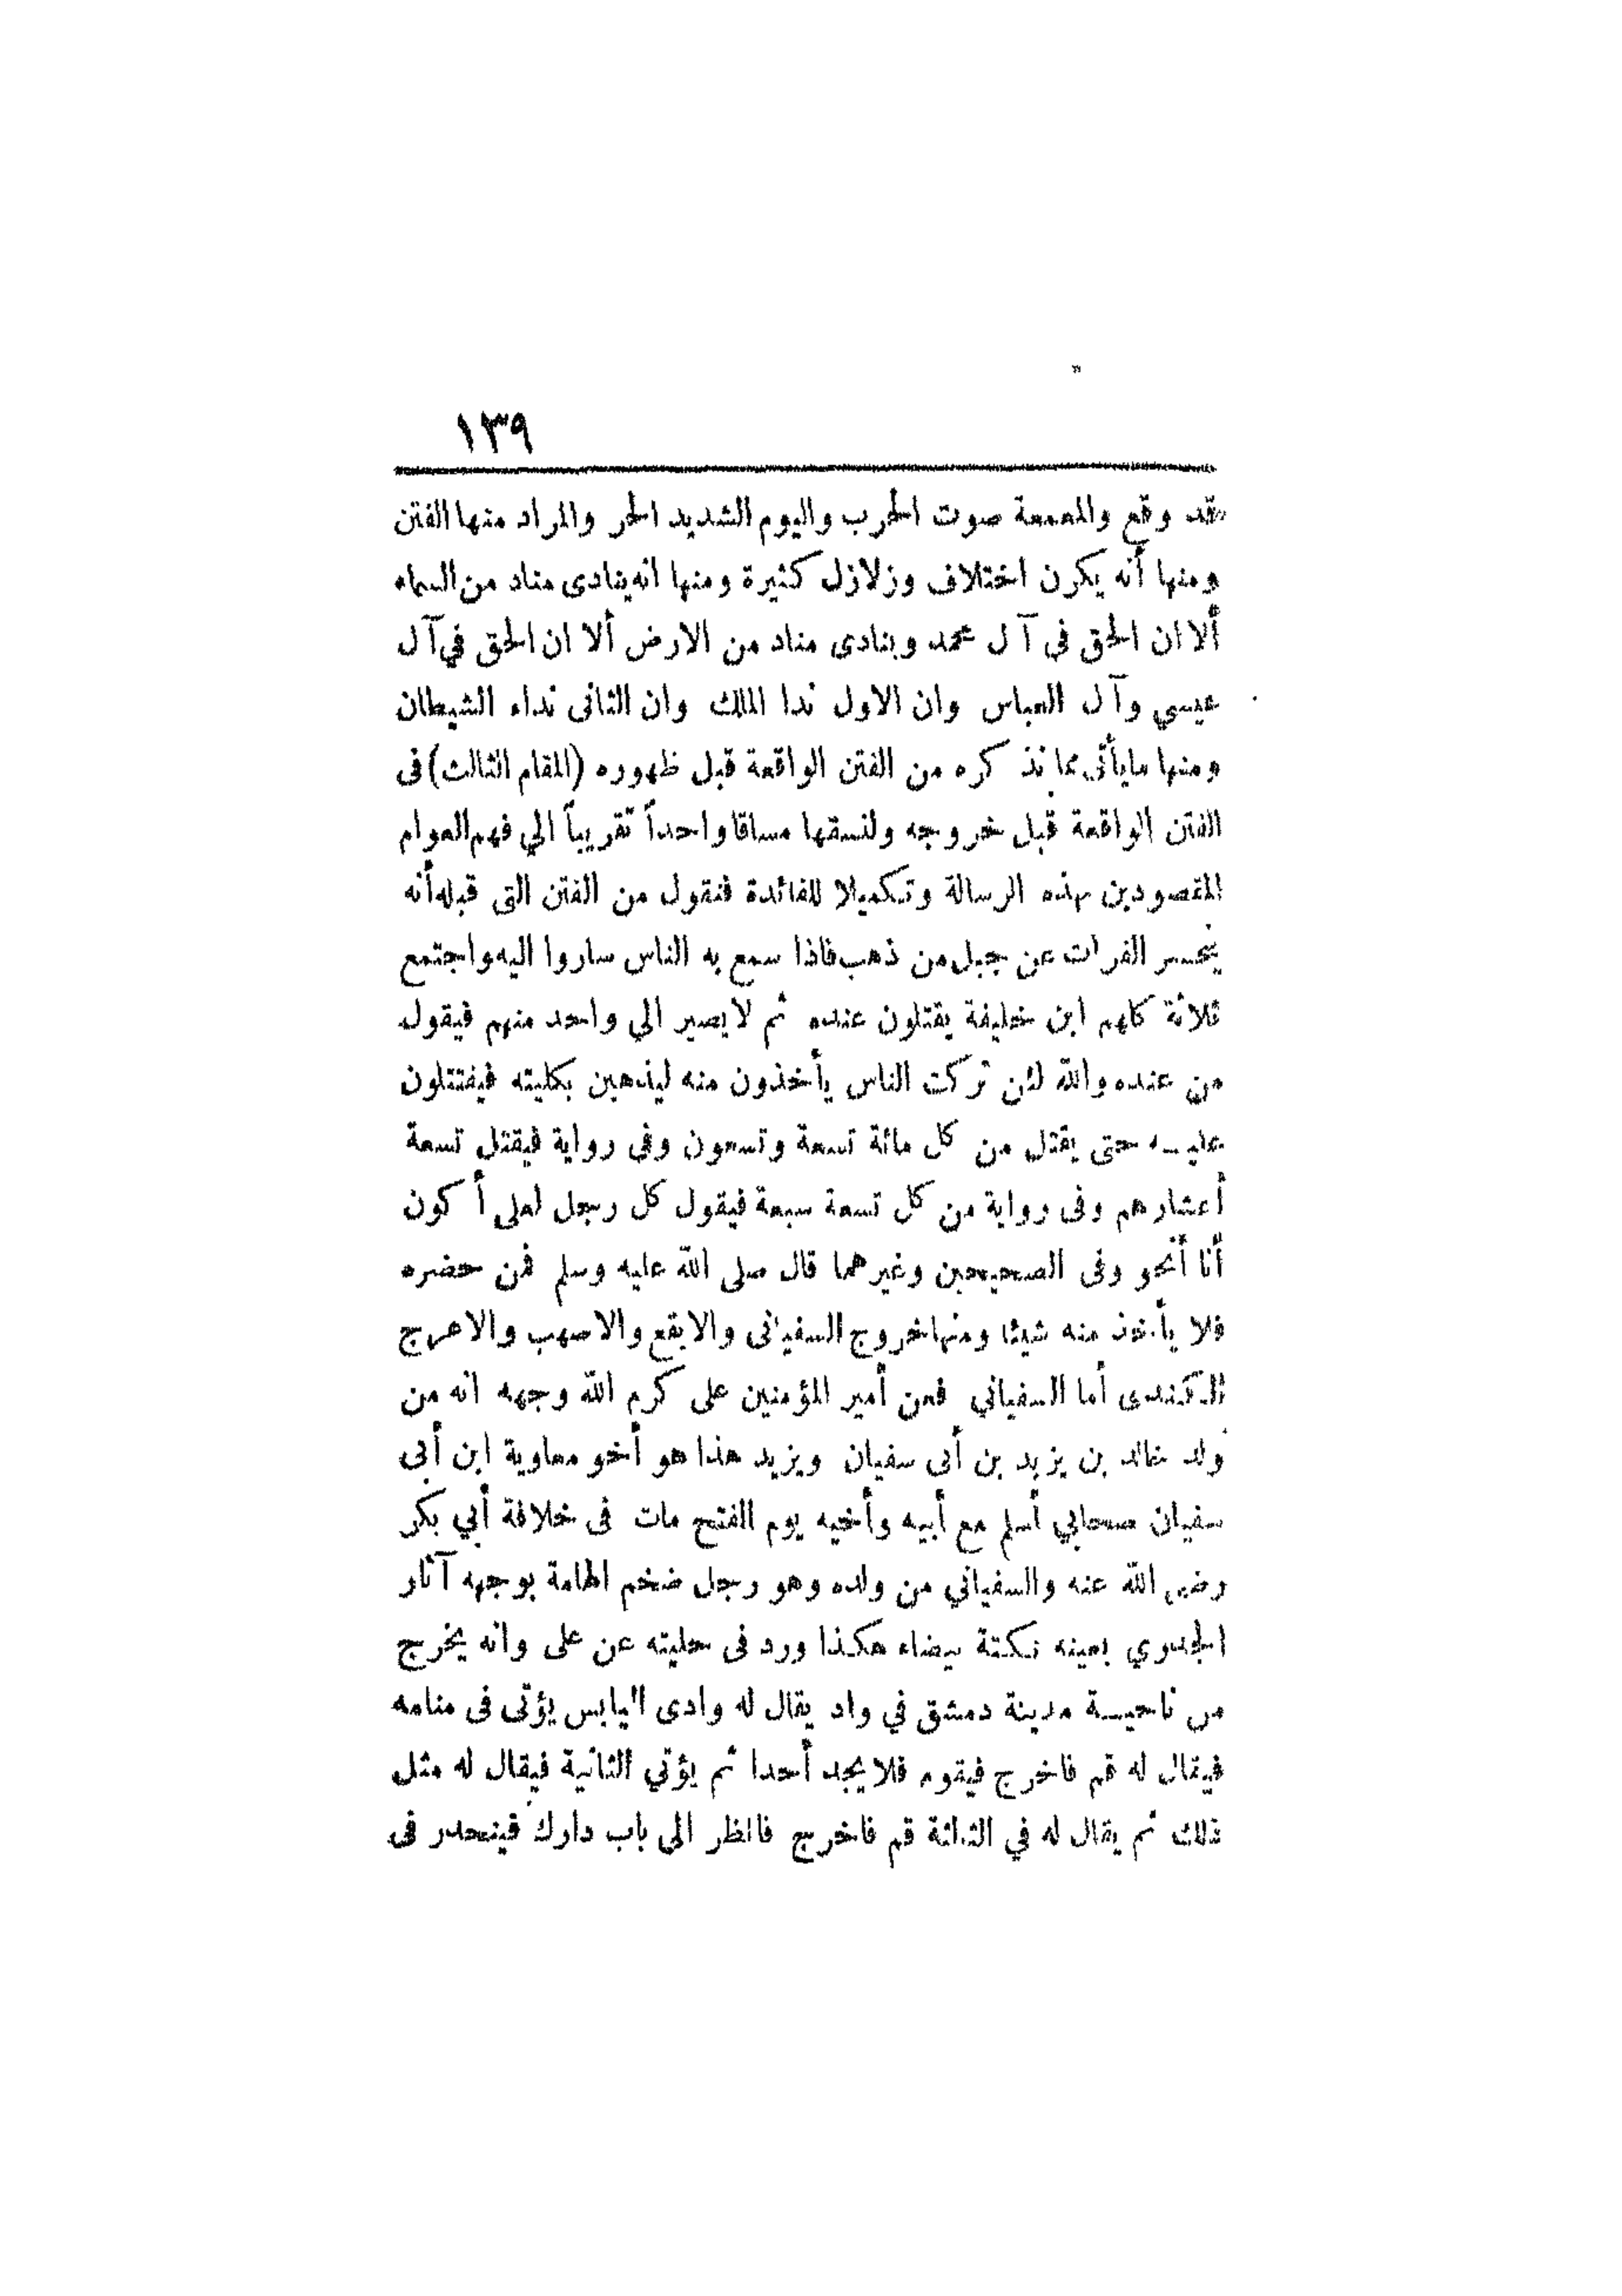 ١٣٩
فقد وقع والمعمعة صوت الحرب واليوم الشديد الحر والمراد منها الفتن
ومنها أنه يكون اختلاف وزلازل كثيرة ومنها انه ينادى مناد من السماء
ألا ان الحق في آل محمد وينادى مناد من الارض ألا ان الحق في آل
عيسي وآل العباس وان الاول ندا الملك وان الثانى نداء الشيطان
ومنها ما يأتى مما نذكره من الفتن الواقعة قبل ظهوره (المقام الثالث) فى
الفتن الواقعة قبل خروجه ولنسقها مساقا واحداً تقريباً الي فهم العوام
المقصودين بهذه الرسالة وتكميلا للفائدة فنقول من الفتن التى قبله أنه
ينحسر الفرات عن جبل من ذهب فاذا سمع به الناس ساروا اليه واجتمع
ثلاثة كلهم ابن خليفة يقتلون عنده ثم لا يصير الي واحد منهم فيقول
من عنده والله لئن تركت الناس يأخذون منه ليذهبن بكليته فيقتتلون
عليه حتى يقتل من كل مائة تسعة وتسعون وفى رواية فيقتل تسعة
أعشارهم وفى رواية من كل تسعة سبعة فيقول كل رجل لعلى أكون
أنا أنجو وفى الصحيحين وغيرهما قال صلى الله عليه وسلم فمن حضره
فلا يأخذ منه شيئا ومنها خروج السفيانى والابقع والاصهب والاعرج
الكندى أما السفياني فعن أمير المؤمنين على كرم الله وجهه انه من
ولد خالد بن يزيد بن أبى سفيان ويزيد هذا هو أخو معاوية ابن أبى
سفيان صحابي أسلم مع أبيه وأخيه يوم الفتح مات فى خلافة أبي بكر
رضى الله عنه والسفياني من ولده وهو رجل ضخم الهامة بوجهه آثار
الجدري بعينه نكتة بيضاء هكذا ورد فى حليته عن على وانه يخرج
من ناحية مدينة دمشق في واد يقال له وادى اليابس يؤتى فى منامه
فيقال له قم فاخرج فيقوم فلا يجد أحدا ثم يؤتي الثانية فيقال له مثل
ذلك ثم يقال له في الثالثة قم فاخرج فانظر الى باب دارك فينحدر فى